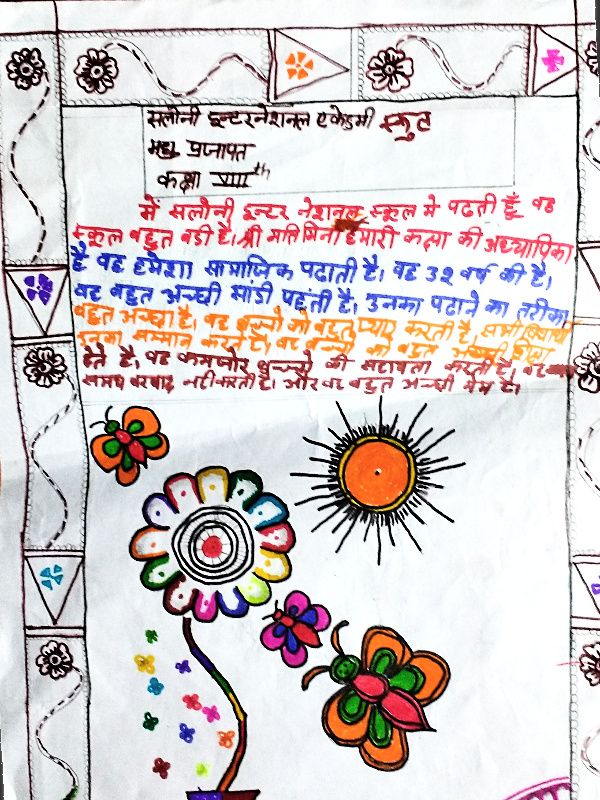 सलोनी इन्टरनेशनल एकेडमी स्कुल
महा प्रजापत
कक्षा VIII th
में सलोनी इन्टर नेशनल स्कूल मे पढती हूँ वह
स्कूल बहुत बडी है। श्री मति मिनी हमारी कक्षा की अध्यापिका
है वह हमेशा सामाजिक पढाती है। वह 32 वर्ष की है।
वह बहुत अच्छी सांडी पहंती है। उनका पढाने का तरीका
बहुत अच्छा है। वह बच्चो को बहुत प्यार करती है, सभी
उनका सम्मान करते है। वह बच्चो को बहुत अच्छी शिक्षा
देते है, वह कमजोर बच्चे की सहायता करती है, वह
समय बरबाद नही करती है। और वह बहुत अच्छी मेम है।